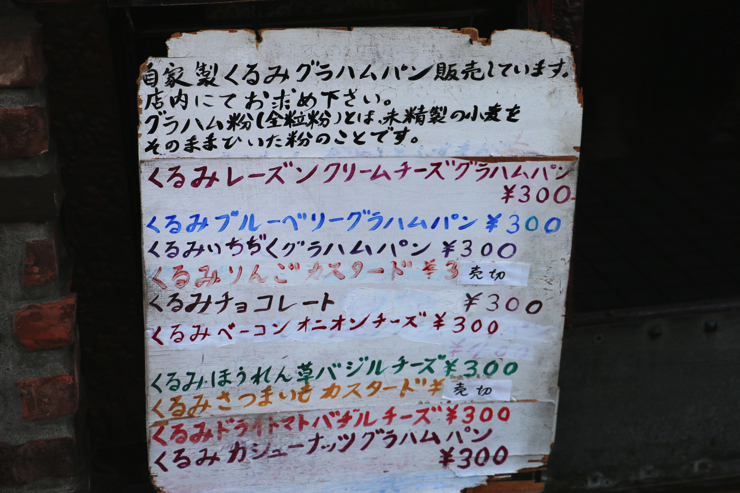 自家製くるみグラハムパン販売しています。
店内にてお求め下さい。
グラハム粉(全粒粉)とは、未精製の小麦を
そのままひいた粉のことです。
くるみレーズンクリームチーズグラハムパン
¥300
くるみブルーベリーグラハムパン ¥300
くるみいちぢくグラハムパン ¥300
くるみりんごカスタード ¥3 売切
くるみチョコレート ¥300
くるみベーコンオニオンチーズ ¥300
くるみほうれん草バジルチーズ ¥300
くるみさつまいもカスタード ¥ 売切
くるみドライトマトバヂルチーズ ¥300
くるみカシューナッツグラハムパン
¥300